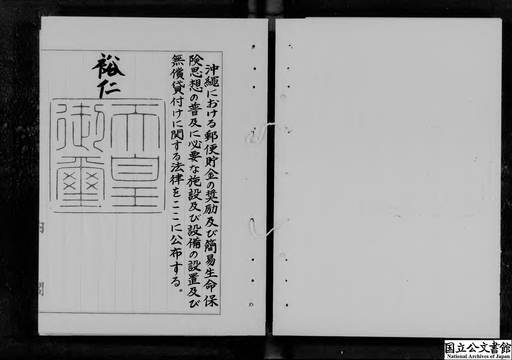 沖繩における郵便貯金の奨励及び簡易生命保
険思想の普及に必要な施設及び設備の設置及び
無償貸付けに関する法律をここに公布する。
裕仁
天皇
御璽
国立公文書館
National Archives of Japan